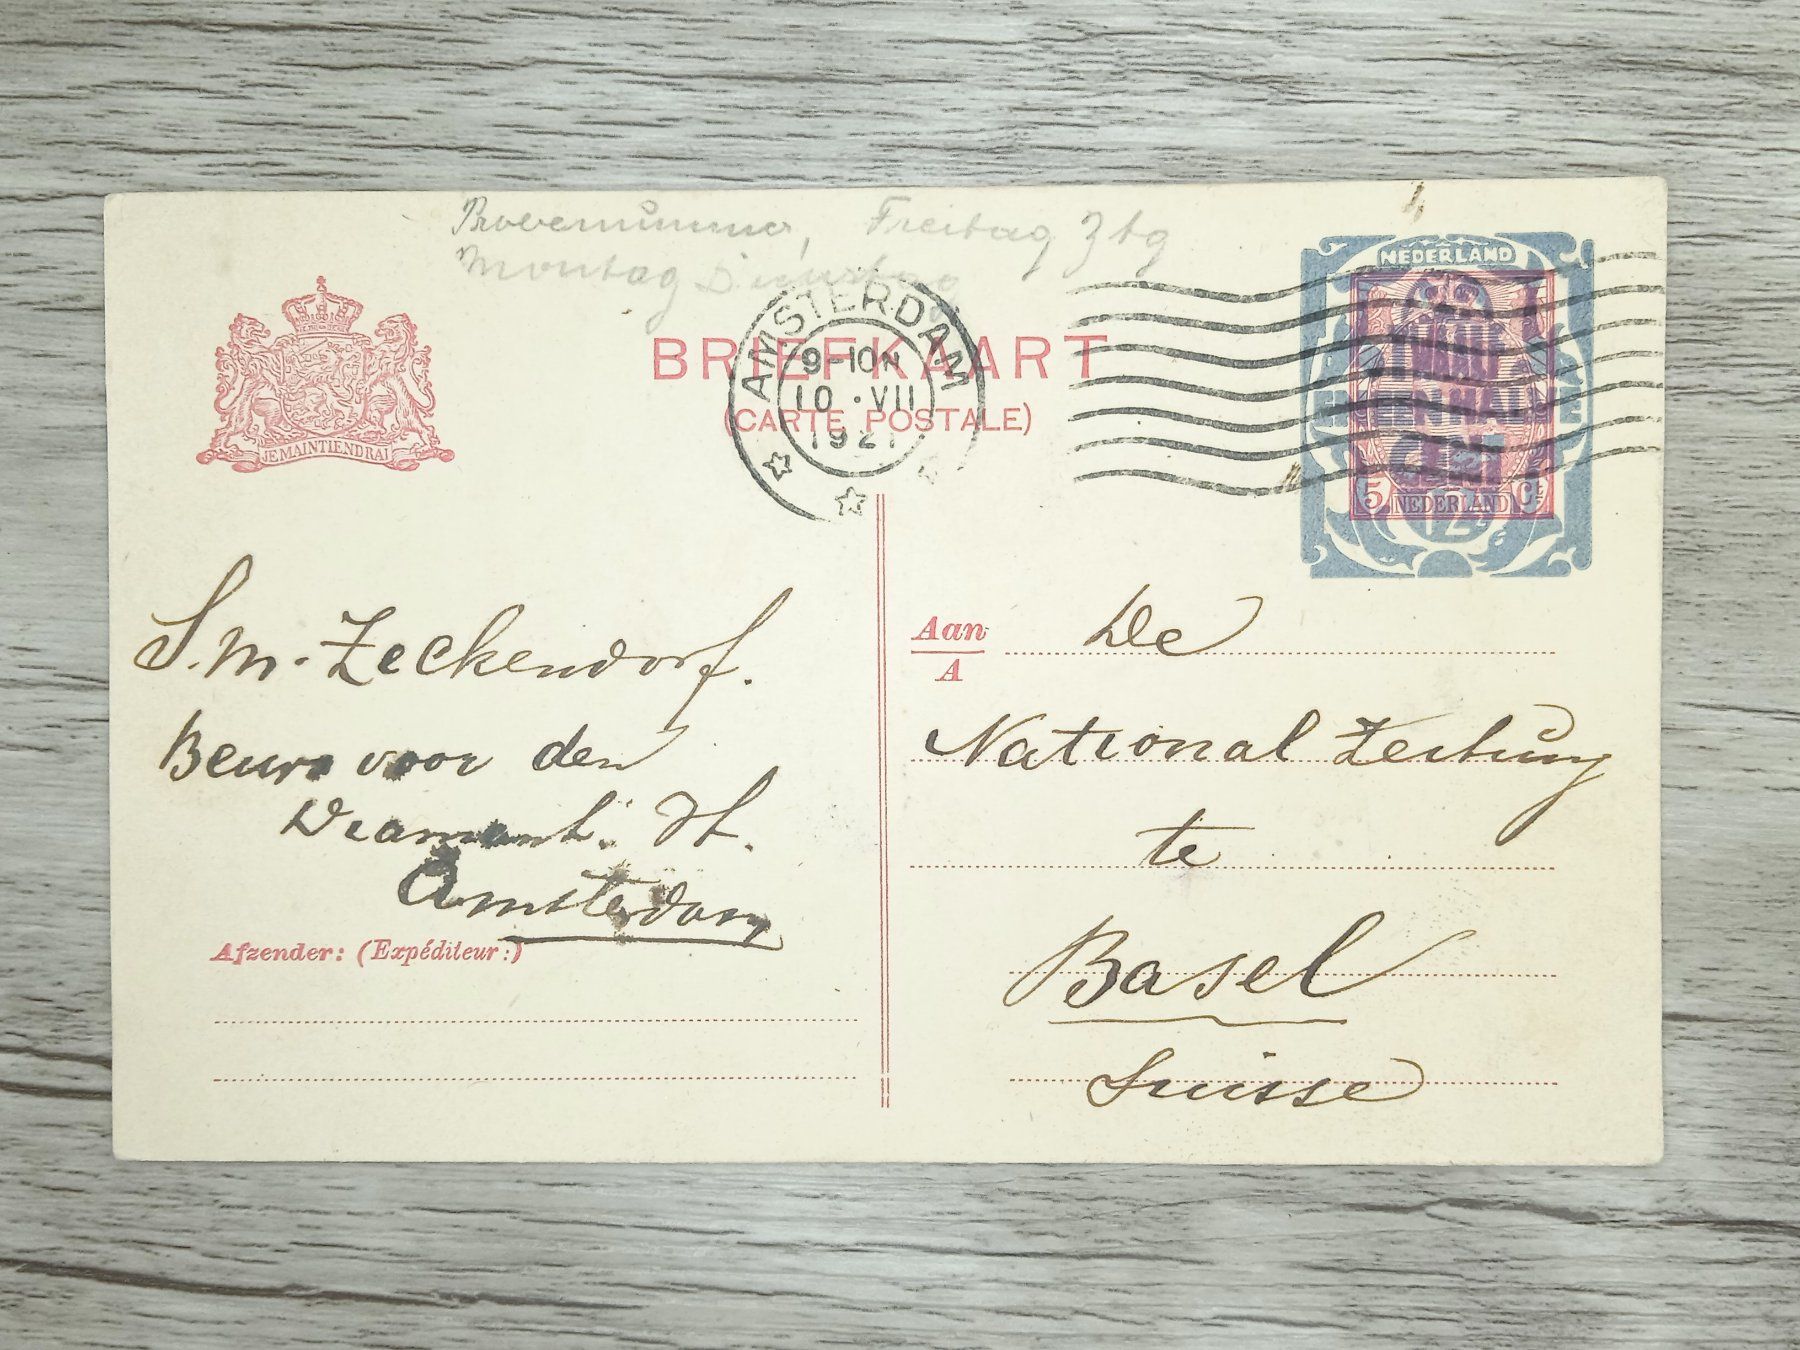 Probenummer, Freitag Ztg
Montag Dienstag
JE MAINTIENDRAI
BRIEFKAART
(CARTE POSTALE)
AMSTERDAM
9-10 N
10 · VII
1921
NEDERLAND
TWAALF
EN EEN HALVE
CENT
5 NEDERLAND Ct
12½ c
S. M. Zeckendorf.
Beurs voor den
Diamant. H.
Amsterdam
Afzender: (Expéditeur:)
Aan
A
De
National Zeitung
te
Basel
Suisse